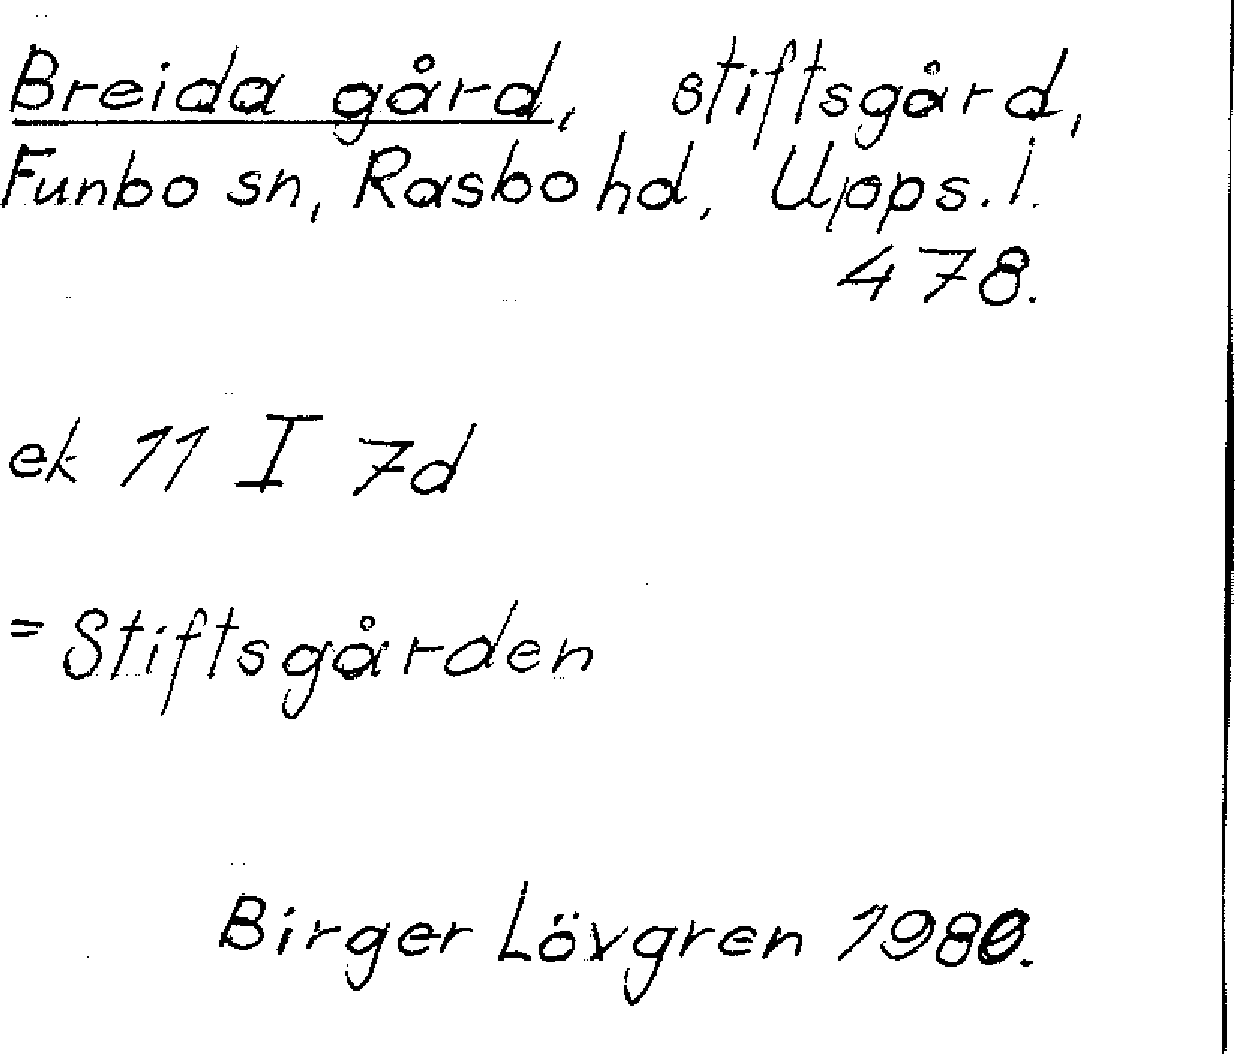 Breida gård, stiftsgård,
Funbo sn, Rasbo hd, Upps. l.
478.
ek 11 I 7d
= Stiftsgården
Birger Lövgren 1980.